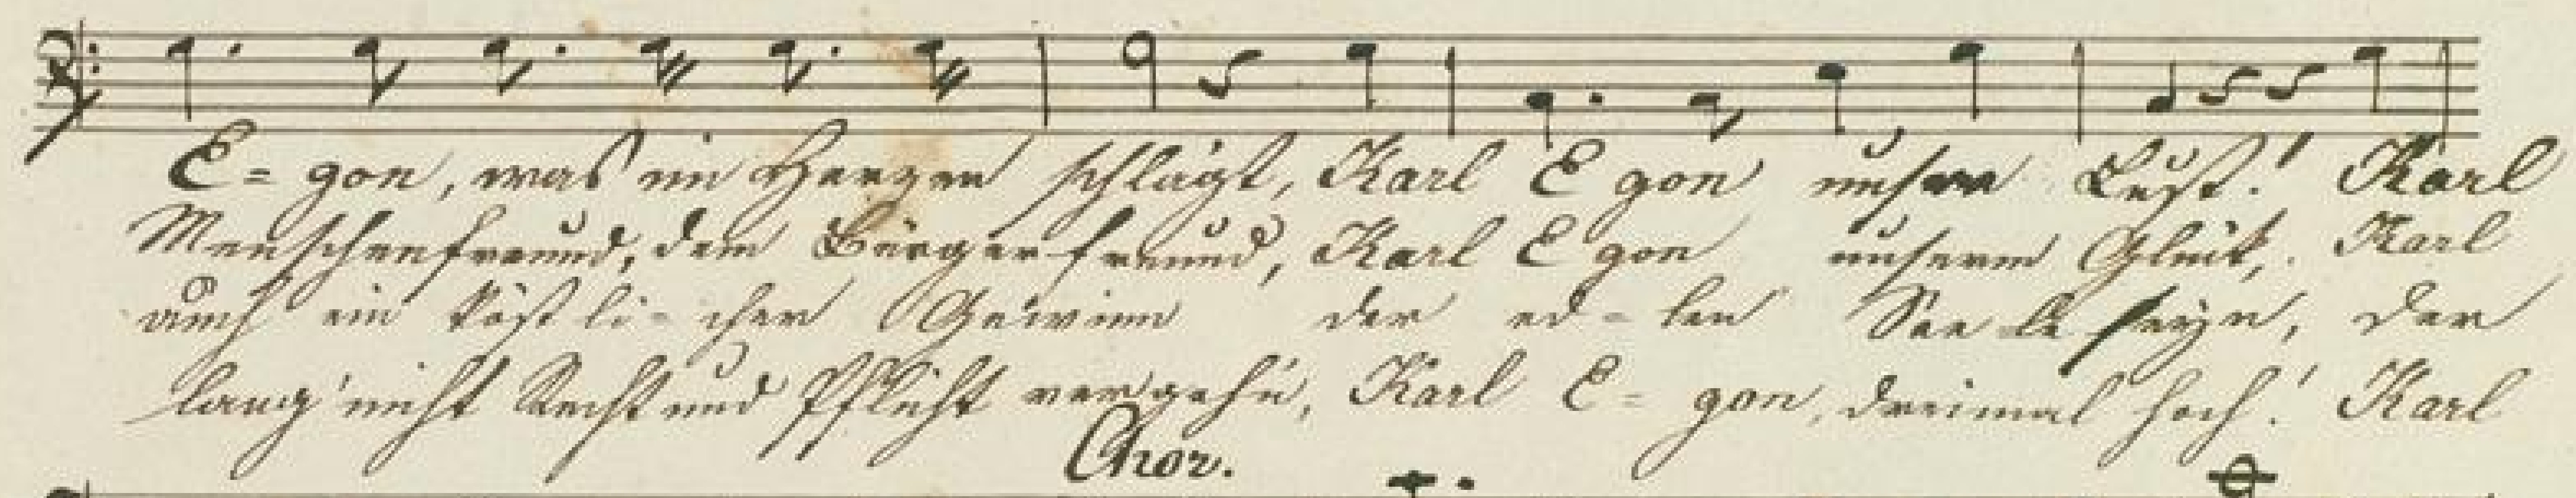 E= gon, was im Herzen schlägt, Karl E gon unsre Lust! Karl
Menschenfreund, dem Bürgerfreund, Karl E gon unserm Glück, Karl
auch ein köst li- cher Gewinn der ed- len See le seyn, der
lang' nicht Recht und Pflicht vergehn, Karl E= gon, dreimal hoch! Karl
Chor.